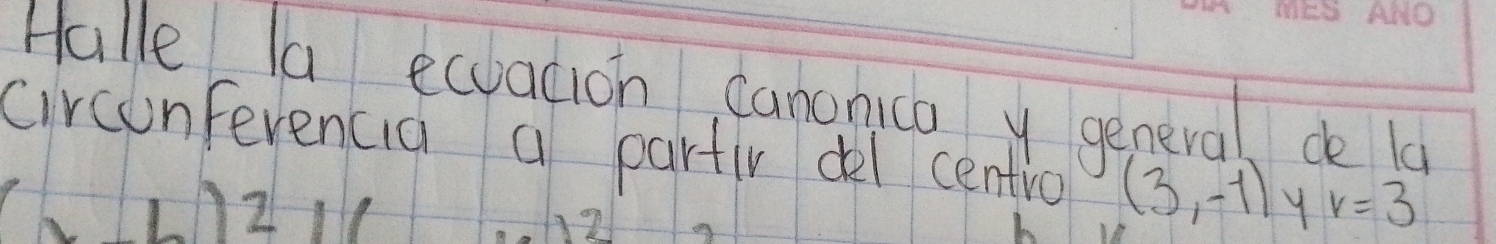 MES AÑO
Halle la ecuación canonica y general de la
circunferencia a partir del centro (3,-1) y r=3